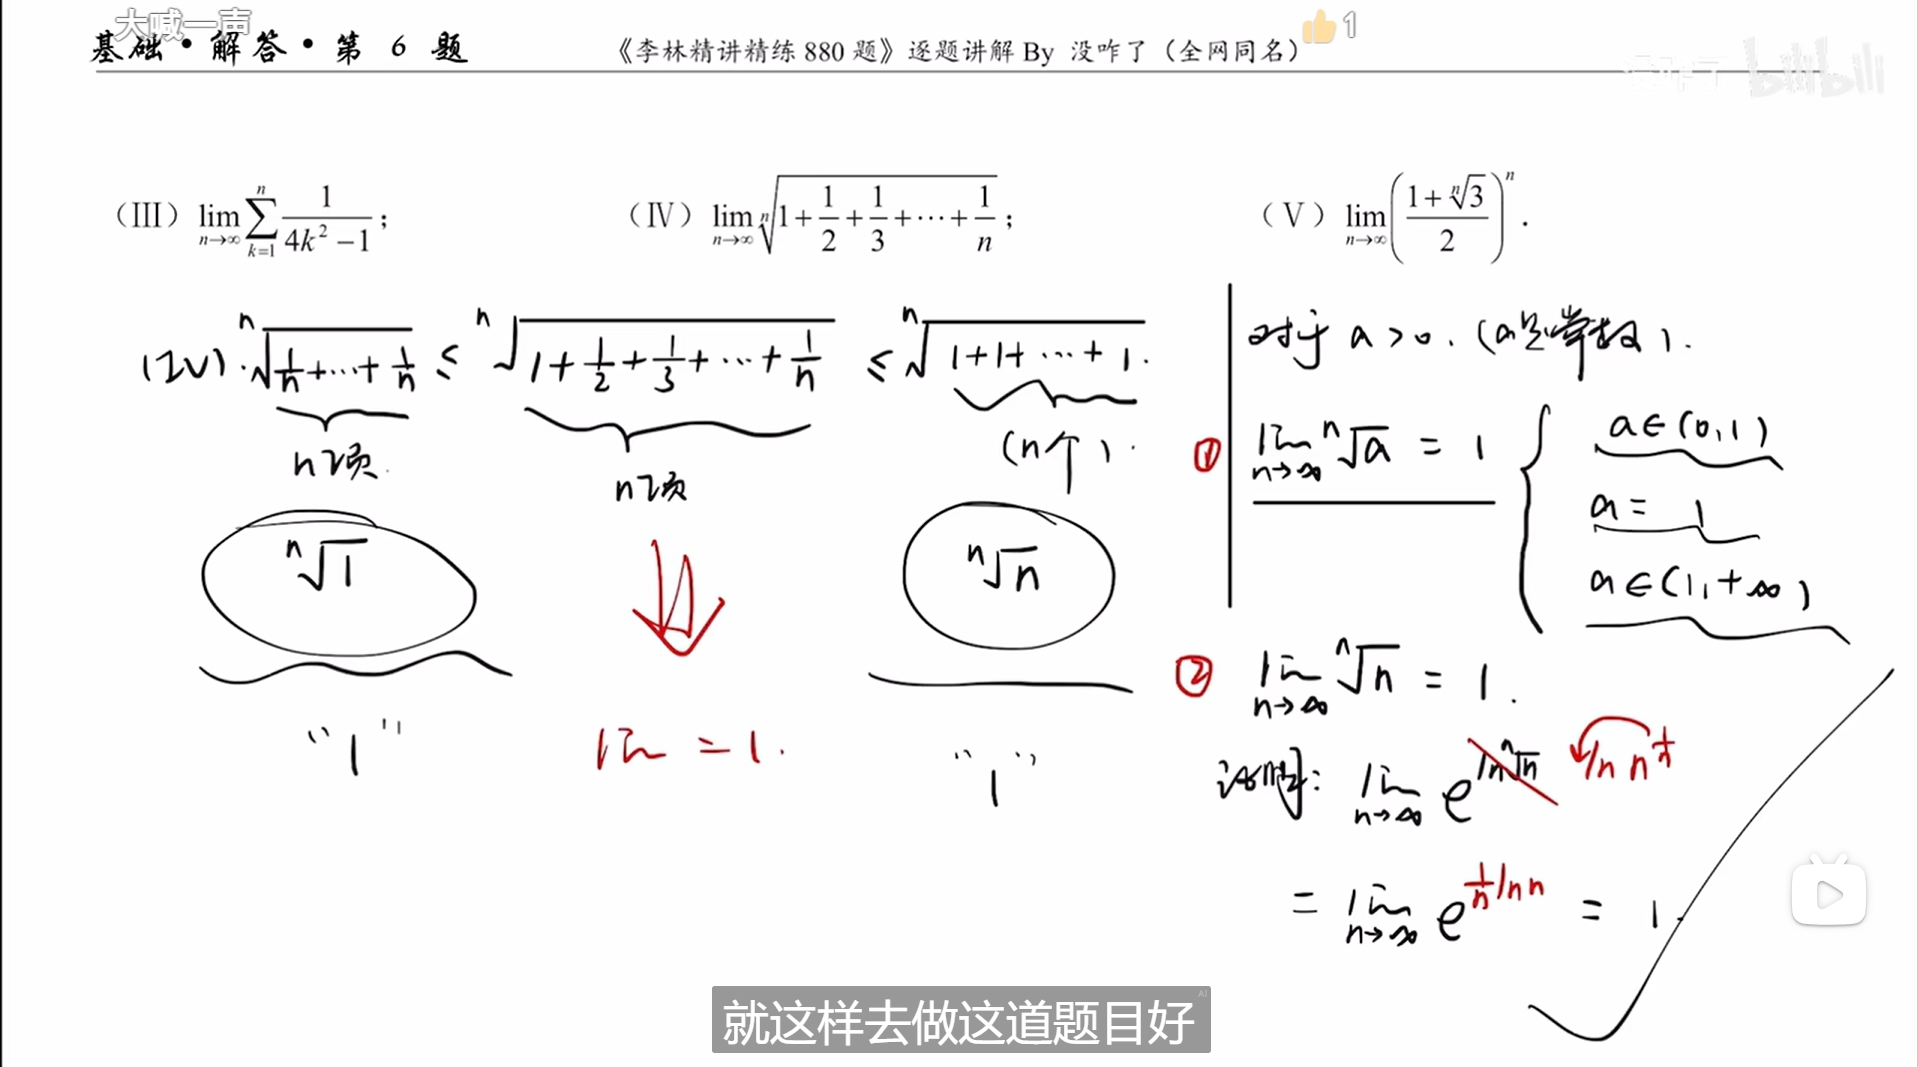 大喊一声
基础·解答·第 6 题 《李林精讲精练880题》逐题讲解 By 没咋了（全网同名） 1
没咋了 bilibili
（Ⅲ） lim_{n→∞} ∑_{k=1}^{n} 1/(4k²−1)； （Ⅳ） lim_{n→∞} ⁿ√(1+1/2+1/3+⋯+1/n)； （Ⅴ） lim_{n→∞} ((1+ⁿ√3)/2)ⁿ．
(IV). ⁿ√(1/n+⋯+1/n) ≤ ⁿ√(1+1/2+1/3+⋯+1/n) ≤ ⁿ√(1+1+⋯+1).
n项. n项 (n个).
ⁿ√1 ⁿ√n
"1" lim = 1. "1"
对于 a>0. (a是常数).
① lim_{n→∞} ⁿ√a = 1 { a∈(0,1)
a = 1
a∈(1,+∞)
② lim_{n→∞} ⁿ√n = 1.
证明: lim_{n→∞} e^{ln ⁿ√n} ln n^{1/n}
= lim_{n→∞} e^{1/n ln n} = 1.
就这样去做这道题目好
AI